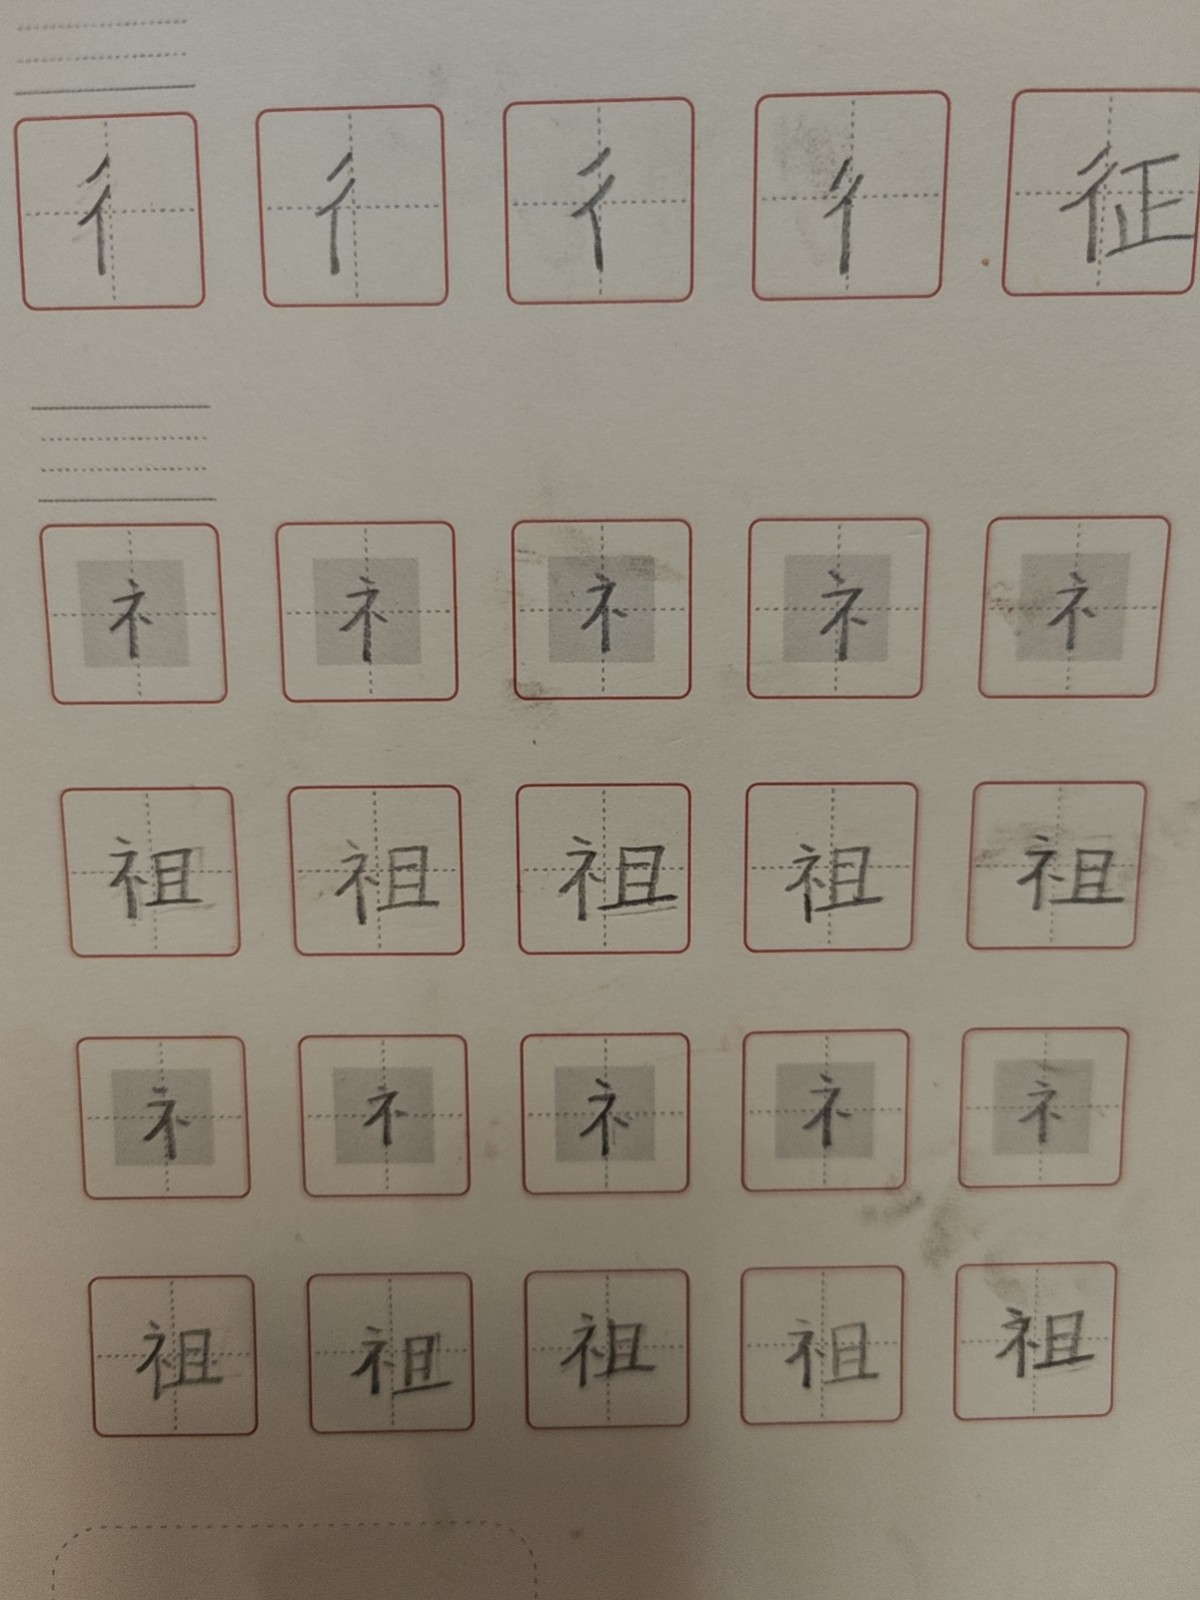 彳 彳 彳 彳 征
礻 礻 礻 礻 礻
祖 祖 祖 祖 祖
礻 礻 礻 礻 礻
祖 祖 祖 祖 祖